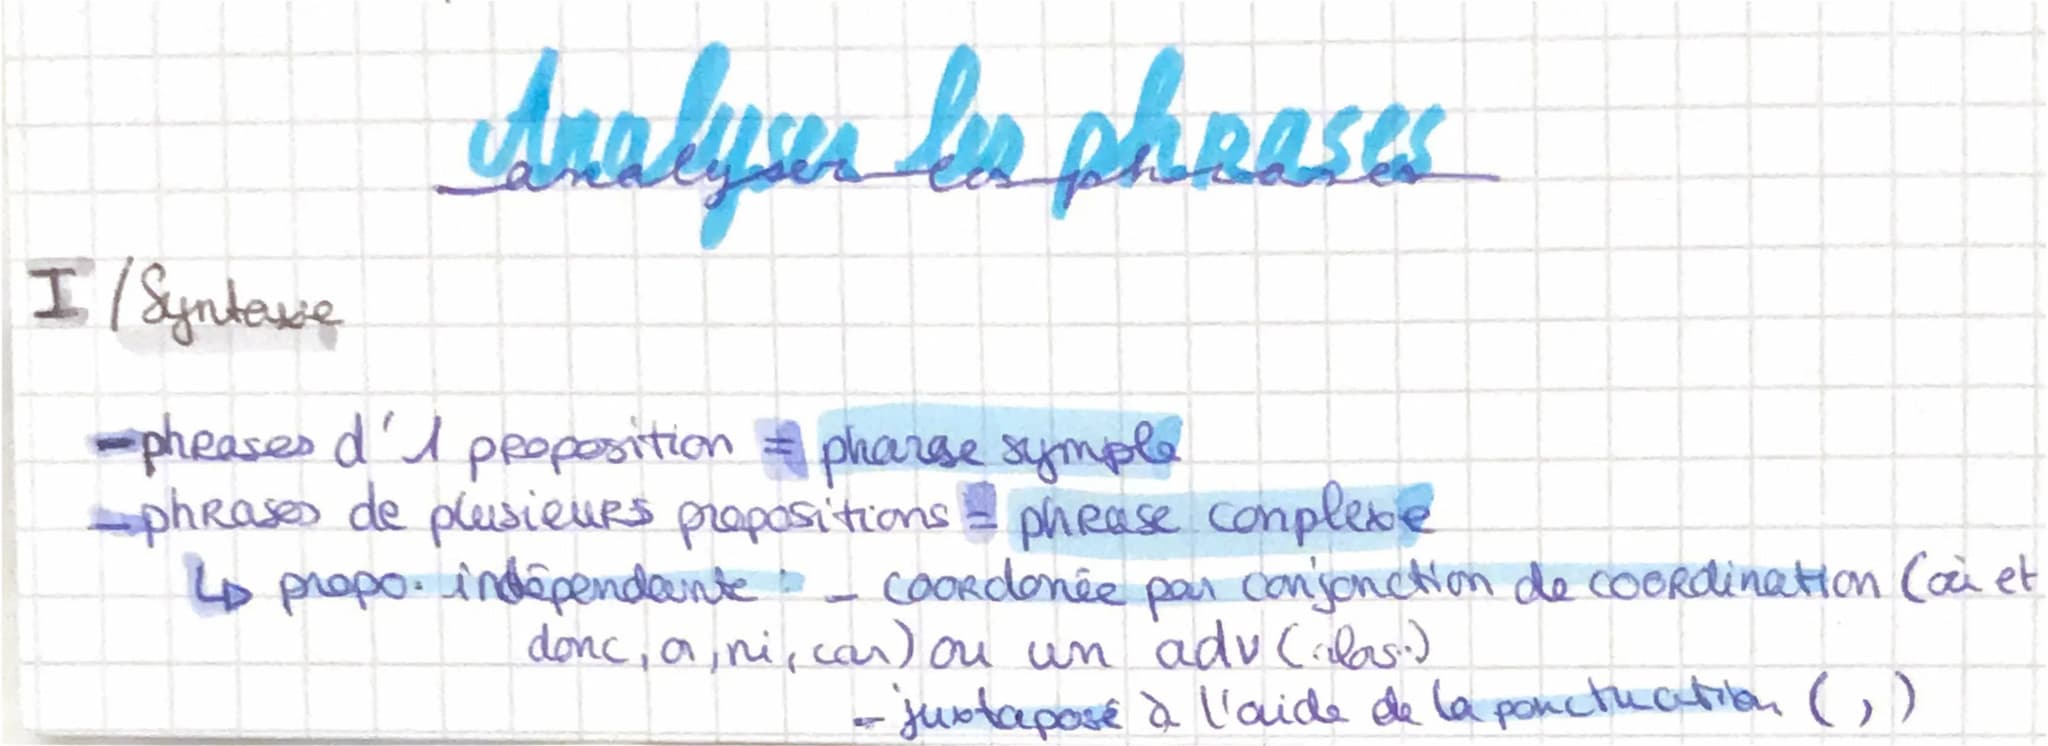 Analyser les phrases
analyser les phrases
I / Syntaxe
- phrases d'1 proposition = pharse symple
- phrases de plusieurs propositions = phrase conplexe
↳ propo. indépendante : - coordonée par conjonction de coordination (où et
donc, or, ni, car) ou un adv (alas..)
- juxtaposé à l'aide de la ponctuation ( , )